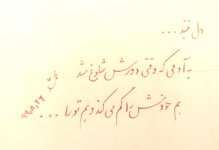 دل نبند ...
به آدمی که وقتی دورش شلوغ شد
هم خودش را گم می کند و هم تو را ...
۹۸,۸,۲۶